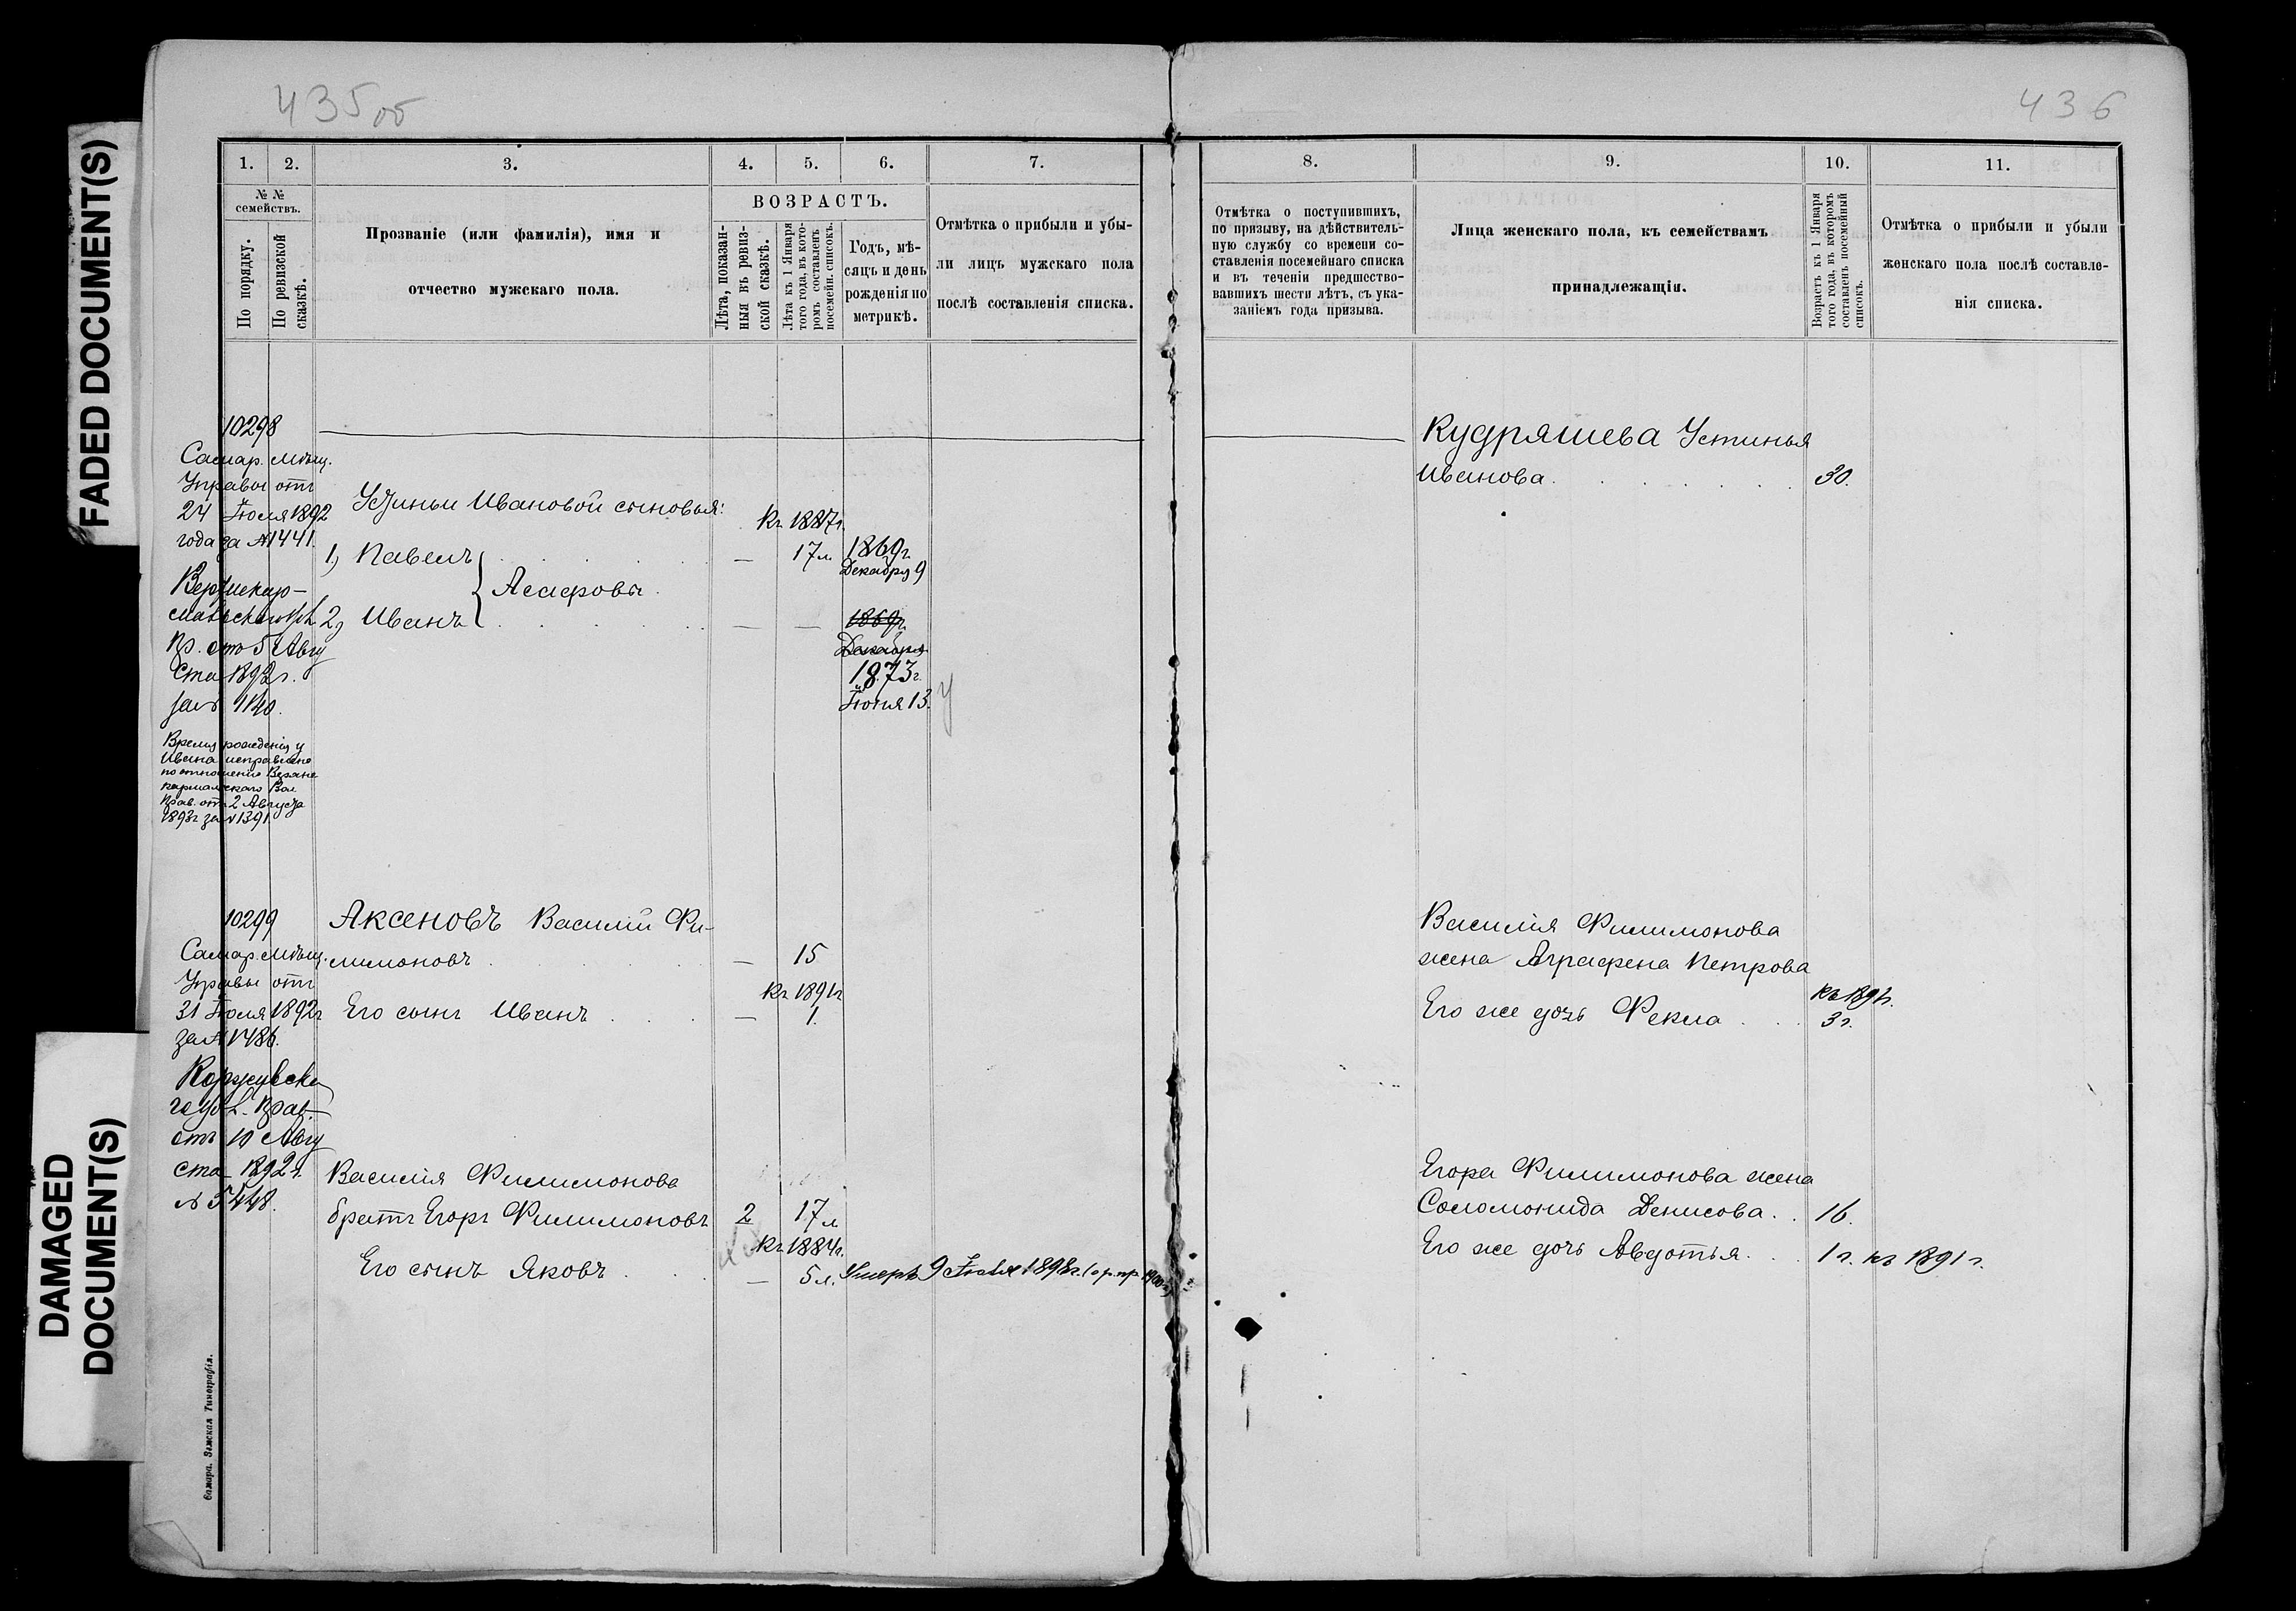 FADED DOCUMENT(S)
DAMAGED
DOCUMENT(S)
435 об
1.
2.
3.
4.
5.
6.
7.
№ №
семействъ.
По порядку.
По ревизской
сказкѣ.
Прозваніе (или фамилія), имя и
отчество мужскаго пола.
ВОЗРАСТЪ.
Лѣта, показан-
ныя въ ревиз-
ской сказкѣ.
Лѣта къ 1 Января
того года, въ кото-
ромъ составленъ
посемейн. списокъ.
Годъ, мѣ-
сяцъ и день
рожденія по
метрикѣ.
Отмѣтка о прибыли и убы-
ли лицъ мужскаго пола
послѣ составленія списка.
10298
Самар. мѣщ.
Управы отъ
24 Іюля 1892
года за №1441.
ста 1892 г.
Время рожденія у
Ивана исправлено
по отношенію
Прав. отъ 2 Августа
1893г за №1391
Устиньи Ивановой сыновья:
къ 1887г.
1, Павелъ
— 17 л. 1869г.
Декабря 9
Асафовы.
2, Иванъ
— — 1869г.
Декабря
1873 г.
Іюня 13.
10299
Самар. мѣщ.
Управы отъ
31 Іюля 1892г
за №1486.
отъ 10 Авгу
ста 1892 г.
№ 5448.
Аксеновъ Василій Фи-
лимоновъ . — 15
къ 1891г
Его сынъ Иванъ . — 1.
Василія Филимонова
братъ Егоръ Филимоновъ 2 17 л
къ 1884г.
Его сынъ Яковъ . — 5 л. Умеръ 9 Іюля 1898г. (о р. пр. 1900 г)
Самара. Земская Типографія.
436
8.
9.
10.
11.
Отмѣтка о поступившихъ,
по призыву, на дѣйствитель-
ную службу со времени со-
ставленія посемейнаго списка
и въ теченіи предшество-
вавшихъ шести лѣтъ, съ ука-
заніемъ года призыва.
Лица женскаго пола, къ семействамъ
принадлежащія.
Возрастъ къ 1 Января
того года, въ которомъ
составленъ посемейный
списокъ.
Отмѣтка о прибыли и убыли
женскаго пола послѣ составле-
нія списка.
Кудряшева Устинья
Иванова. 30.
Василія Филимонова
жена Аграфена Петрова
къ 1891г.
Его же дочь Фекла . 3 г.
Егора Филимонова жена
Соломонида Денисова. . 16.
Его же дочь Авдотья. . 1 г. къ 1891 г.